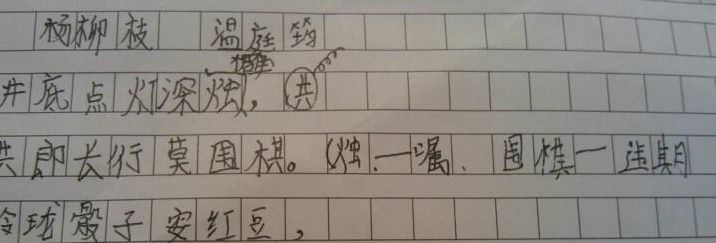 杨柳枝 温庭筠
井底点灯深烛，共
共郎长行莫围棋。（烛—嘱、围棋—违期
玲珑骰子安红豆，